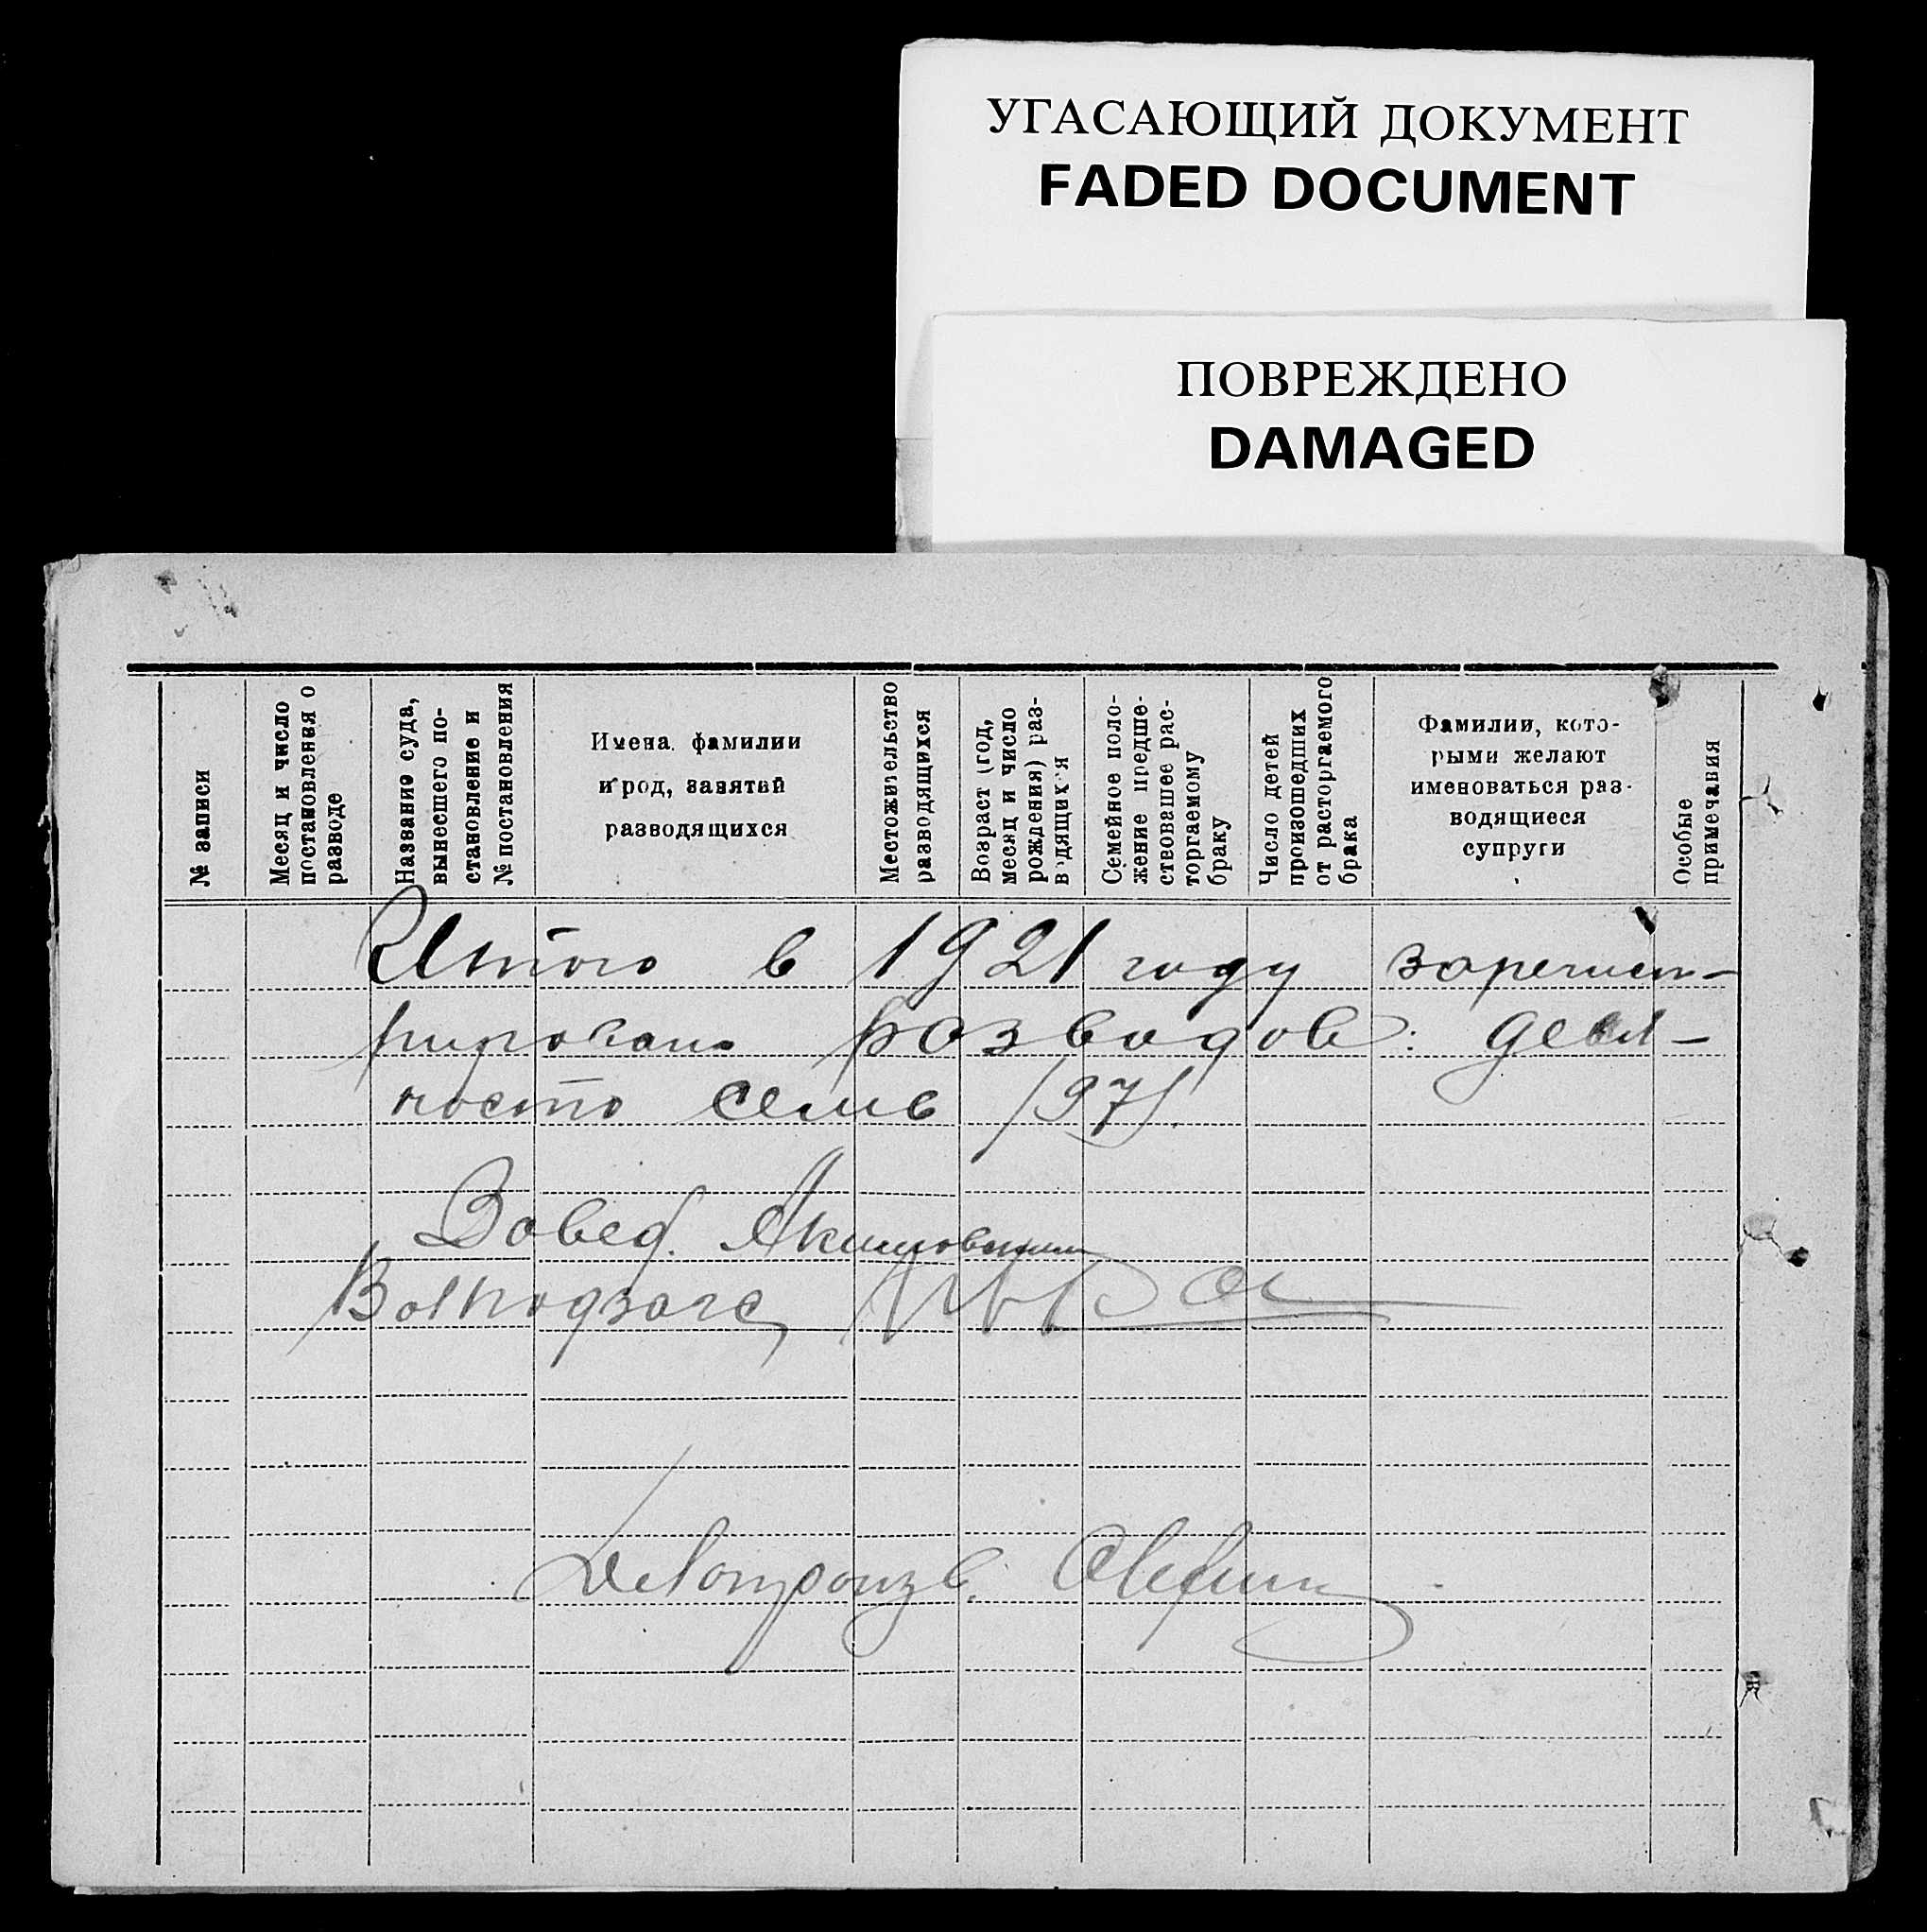 УГАСАЮЩИЙ ДОКУМЕНТ
FADED DOCUMENT
ПОВРЕЖДЕНО
DAMAGED
№ записи
Месяц и число
постановления о
разводе
Название суда,
вынесшего по-
становление и
№ постановления
Имена фамилии
и род, занятий
разводящихся
Местожительство
разводящихся
Возраст (год,
месяц и число
рождения) раз-
водящихся
Семейное поло-
жение предше-
ствовавшее рас-
торгаемому
браку
Число детей
произошедших
от расторгаемого
брака
Фамилии, кото-
рыми желают
именоваться раз-
водящиеся
супруги
Особые
примечания
Итого в 1921 году зарегист-
рировано разводов: девя-
носто семь /97/.
Завед. Акимовским
Волподзагс
Делопроизв.